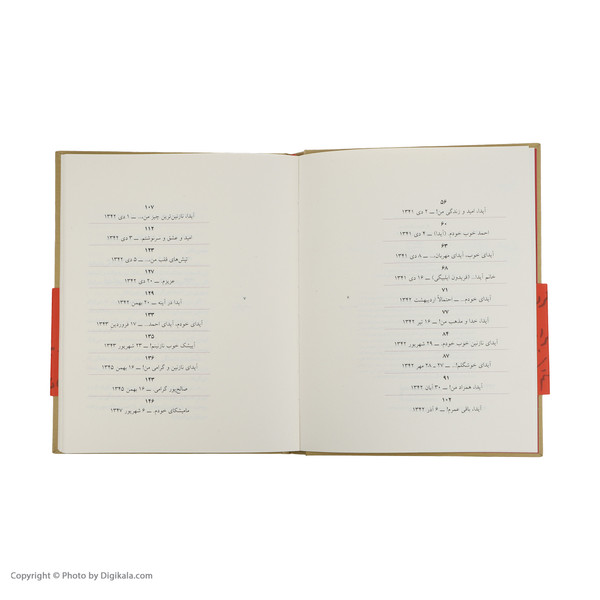 ۵۶
آیدا، امید و زندگی من! ــ ۲ دی ۱۳۴۱
۶۰
احمد خوب خودم. (آیدا) ــ ۴ دی ۱۳۴۱
۶۳
آیدای خوب، آیدای مهربان... ــ ۸ دی ۱۳۴۱
۶۸
خانم آیدا... (فریدون ایلبیگی) ــ ۱۶ دی ۱۳۴۱
۷۱
آیدای خودم... ــ احتمالاً اردیبهشت ۱۳۴۲
۷۷
آیدا، خدا و مذهب من! ــ ۱۶ تیر ۱۳۴۲
۸۴
آیدای نازنین خوب خودم. ــ ۲۹ شهریور ۱۳۴۲
۸۷
آیدای خوشگلم!... ــ ۲۷ ـ ۲۸ مهر ۱۳۴۲
۹۱
آیدا، همزاد من! ــ ۳۰ آبان ۱۳۴۲
۱۰۲
آیدا، باقی عمرم! ــ ۶ آذر ۱۳۴۲
۱۰۷
آیدا، نازنین‌ترین چیز من... ــ ۱ دی ۱۳۴۲
۱۱۲
امید و عشق و سرنوشتم. ــ ۳ دی ۱۳۴۲
۱۲۳
تپش‌های قلب من... ــ ۵ دی ۱۳۴۲
۱۲۷
عزیزم ــ ۲۰ دی ۱۳۴۲
۱۲۹
آیدا در آینه ــ ۲۰ بهمن ۱۳۴۲
۱۳۳
آیدای خودم، آیدای احمد... ــ ۱۷ فروردین ۱۳۴۳
۱۳۵
آیشک خوب نازنینم! ــ ۲۳ شهریور ۱۳۴۳
۱۳۶
آیدای نازنین و گرامی من! ــ ۱۶ بهمن ۱۳۴۵
۱۴۳
صالح‌پور گرامی ــ ۱۶ بهمن ۱۳۴۵
۱۴۶
مامیشکای خودم. ــ ۶ شهریور ۱۳۴۷
Copyright © Photo by Digikala.com